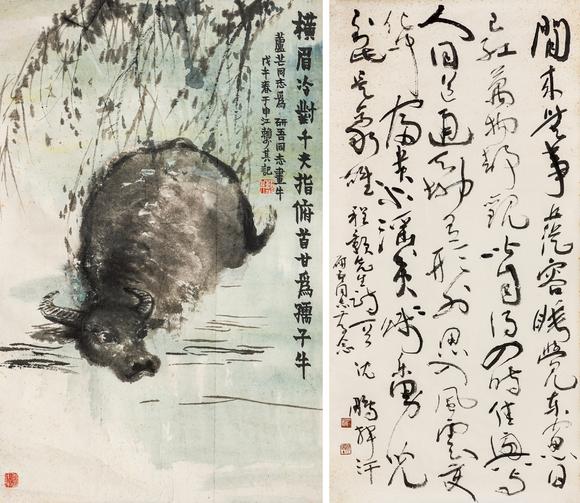 橫眉冷對千夫指俯首甘爲孺子牛
蘆芒同志爲 研吾同志畫牛
戊午春于申江賴少其記
閒來無事不從容睡覺東窗日
已紅萬物靜觀皆自得四時佳興與
人同道通天地有形外思入風雲變
態中富貴不淫貧賤樂男兒
到此是豪雄 程顥先生詩一首 沈鵬揮汗
研吾同志